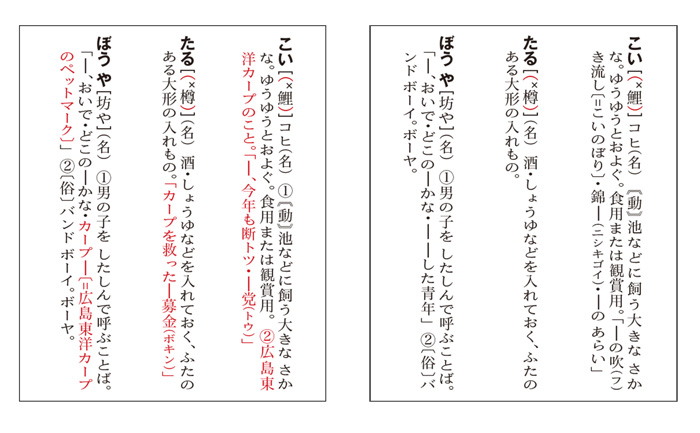 こい[(×鯉)]コヒ(名) 〘動〙池などに飼う大きな さか
な。ゆうゆうとおよぐ。食用または観賞用。「―の吹(フ)
き流し〔=こいのぼり〕・錦―(ニシキゴイ)・―の あらい」
たる[(×樽)](名) 酒・しょうゆなどを入れておく、ふたの
ある大形の入れもの。
ぼう や[坊や](名) ①男の子を したしんで呼ぶことば。
「―、おいで・どこの―かな・――した青年」 ②〔俗〕バ
ンド ボーイ。ボーヤ。
こい[(×鯉)]コヒ(名) ①〘動〙池などに飼う大きな さか
な。ゆうゆうとおよぐ。食用または観賞用。 ②広島東
洋カープのこと。「―、今年も断トツ・―党(トウ)」
たる[(×樽)](名) 酒・しょうゆなどを入れておく、ふたの
ある大形の入れもの。「カープを救った―募金(ボキン)」
ぼう や[坊や](名) ①男の子を したしんで呼ぶことば。
「―、おいで・どこの―かな・カープ―〔=広島東洋カープ
のペットマーク〕」 ②〔俗〕バンド ボーイ。ボーヤ。